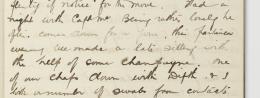 plenty of notice for the move. Had a
night with Capt Mc. Being rather lonely he
often comes down for a yarn, this particular
evening we made a late sitting with
the help of some champagne. One
of our chaps down with Dipth. & I
took a number of swabs from contacts